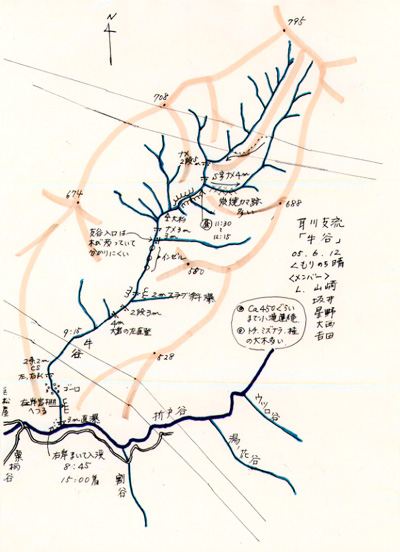 N
795
708
ナメ
2段5m
S字ナメ4m
炭焼カマ跡
多い
674
688
昼 11:30
～
12:15
ナメ3m
3m
支谷入口は
木が茂っていて
分かりにくい
インゼル
580
2mスラブ斜瀑
2段3m
4m
9:15
牛
谷
528
2条2m
CS
ゴーロ
へつる
3m直瀑
右岸まいて入渓
8:45
15:00着
折戸谷
ウツロ谷
割谷
栗柄谷
耳川支流
「牛谷」
05.6.12
くもりのち晴
<メンバー>
L.山崎
坂井
星野
大西
吉田
Ca450ぐらい
まで小滝連続
トチ、ミズナラ、桂
の大木多い